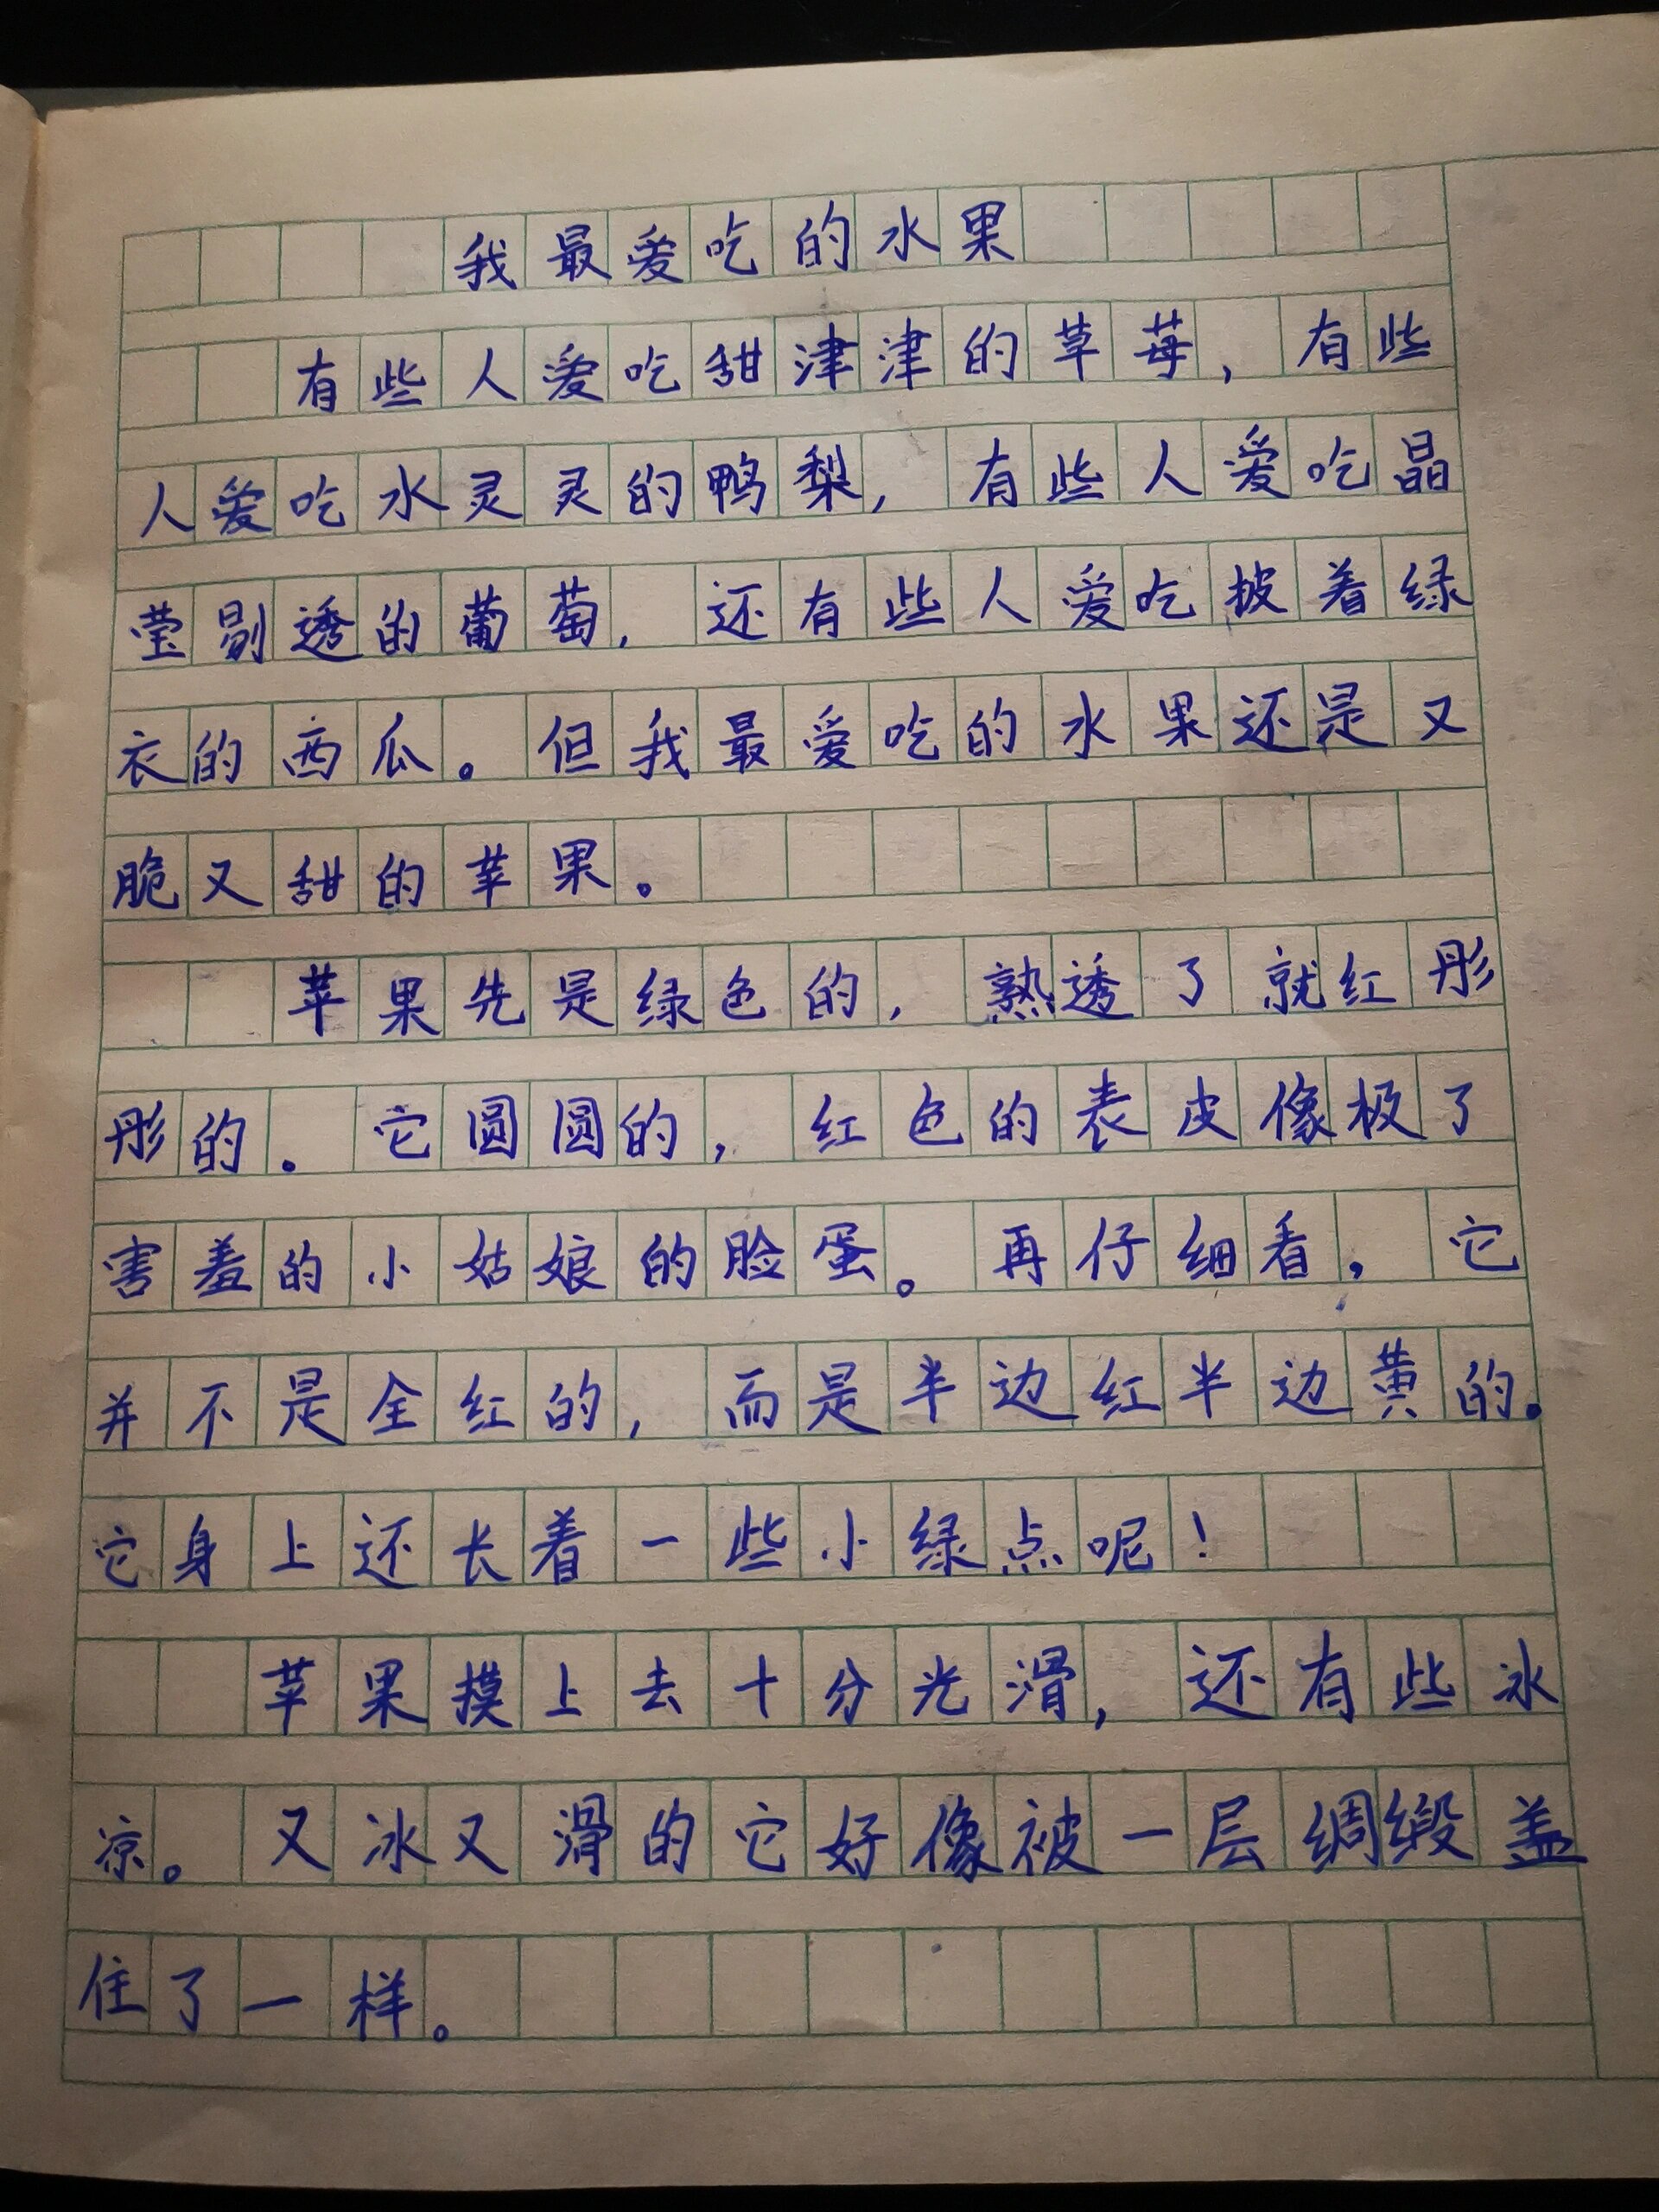 我最爱吃的水果
有些人爱吃甜津津的草莓，有些
人爱吃水灵灵的鸭梨，有些人爱吃晶
莹剔透的葡萄，还有些人爱吃披着绿
衣的西瓜。但我最爱吃的水果还是又
脆又甜的苹果。
苹果先是绿色的，熟透了就红彤
彤的。它圆圆的，红色的表皮像极了
害羞的小姑娘的脸蛋。再仔细看，它
并不是全红的，而是半边红半边黄的。
它身上还长着一些小绿点呢！
苹果摸上去十分光滑，还有些冰
凉。又冰又滑的它好像被一层绸缎盖
住了一样。